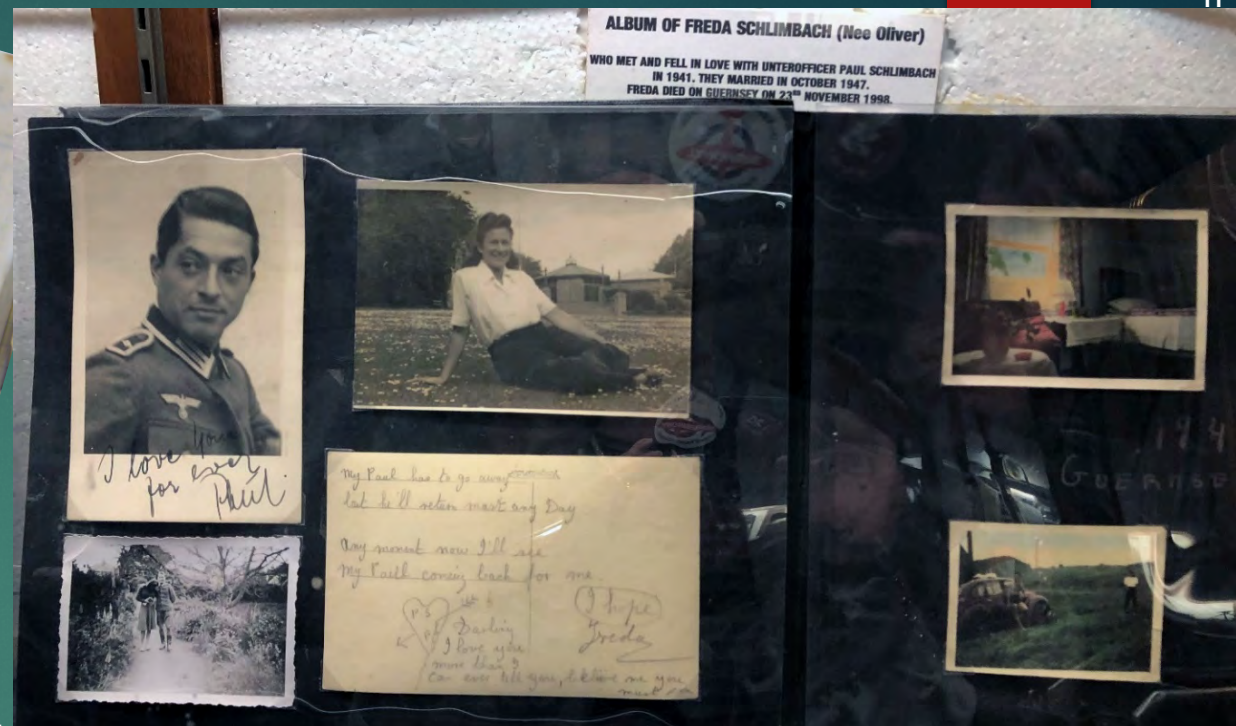 ALBUM OF FREDA SCHLIMBACH (Nee Oliver)
WHO MET AND FELL IN LOVE WITH UNTEROFFICER PAUL SCHLIMBACH
IN 1941. THEY MARRIED IN OCTOBER 1947.
FREDA DIED ON GUERNSEY ON 23RD NOVEMBER 1998.
I love you
for ever
Paul.
My Paul has to go away
but he'll return most any Day
Any moment now I'll see
My Paul coming back for me.
I hope
Freda
Darling
I love you
more than I
can ever tell you, believe me you
must
194
GUERNSE